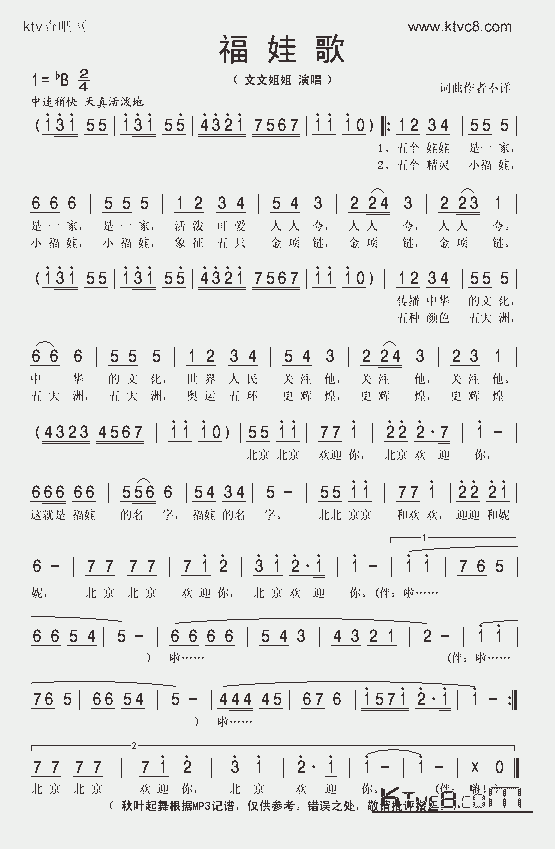 www.ktvc8.com
福 娃 歌
1=♭B 2/4
( 文文姐姐 演唱 )
词曲作者不详
中速稍快 天真活泼地
(1̇3̇1̇ 55 | 1̇3̇1̇ 55 | 4̇3̇2̇1̇ 7567 | 1̇1̇ 1̇0) ‖: 12 34 | 55 5 |
1、五个 娃娃 是一 家，
2、五个 精灵 小福 娃，
6 6 6 | 5 5 5 | 1 2 3 4 | 5 4 3 | 2 24 3 | 2 23 1 |
是 一 家， 是 一 家， 活 泼 可 爱 人 人 夸， 人 人 夸， 人 人 夸。
小 福 娃， 小 福 娃， 象 征 五 只 金 项 链， 金 项 链， 金 项 链。
(1̇3̇1̇ 55 | 1̇3̇1̇ 55 | 4̇3̇2̇1̇ 7567 | 1̇1̇ 1̇0) | 12 34 | 55 5 |
传播 中华 的文 化，
五种 颜色 五大 洲，
6 6 6 | 5 5 5 | 1 2 3 4 | 5 4 3 | 2 24 3 | 2 3 1 |
中 华 的 文 化， 世 界 人 民 关 注 他， 关 注 他， 关 注 他。
五 大 洲， 五 大 洲， 奥 运 五 环 更 辉 煌， 更 辉 煌， 更 辉 煌。
(4323 4567 | 1̇1̇ 1̇0) | 55 1̇1̇ | 77 1̇ | 2̇2̇ 2̇·7 | 1̇ - |
北京 北京 欢迎 你， 北京 欢 迎 你，
666 66 | 556 6 | 54 34 | 5 - | 55 1̇1̇ | 77 1̇ | 2̇2̇ 2̇1̇ |
这就是 福娃 的名 字， 福娃 的名 字。 北北 京京 和欢 欢， 迎迎 和妮
1
6 - | 77 77 | 71̇ 2̇ | 3̇1̇ 2̇·1̇ | 1̇ - | 1̇ 1̇ | 76 5 |
妮， 北 京 北 京 欢 迎 你， 北 京 欢 迎 你。(伴：啦……
66 54 | 5 - | 66 66 | 54 3 | 43 21 | 2 - | 1̇1̇ |
) 啦…… (伴：啦……
76 5 | 66 54 | 5 - | 444 45 | 67 6 | 1̇571̇ 2̇·1̇ | 1̇ - :‖
) 啦……
2
7 7 7 7 | 7 1̇ 2̇ | 3̇ 1̇ | 2̇· 1̇ | 1̇ - | 1̇ - | X 0 ‖
北 京 北 京 欢 迎 你， 北 京 欢 迎 你。
( 秋叶起舞根据MP3记谱，仅供参考，错误之处，敬请批评指正。)
KTvc8.com